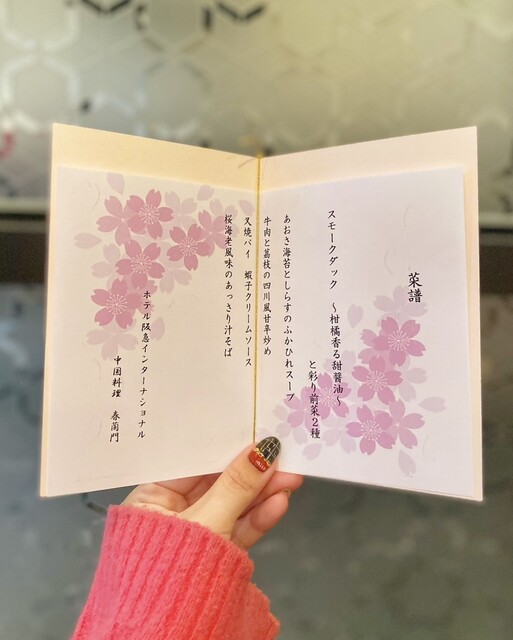 菜譜
スモークダック　～柑橘香る甜醤油～
と彩り前菜２種
あおさ海苔としらすのふかひれスープ
牛肉と茘枝の四川風甘辛炒め
叉焼パイ　蝦子クリームソース
桜海老風味のあっさり汁そば
ホテル阪急インターナショナル
中国料理　春蘭門